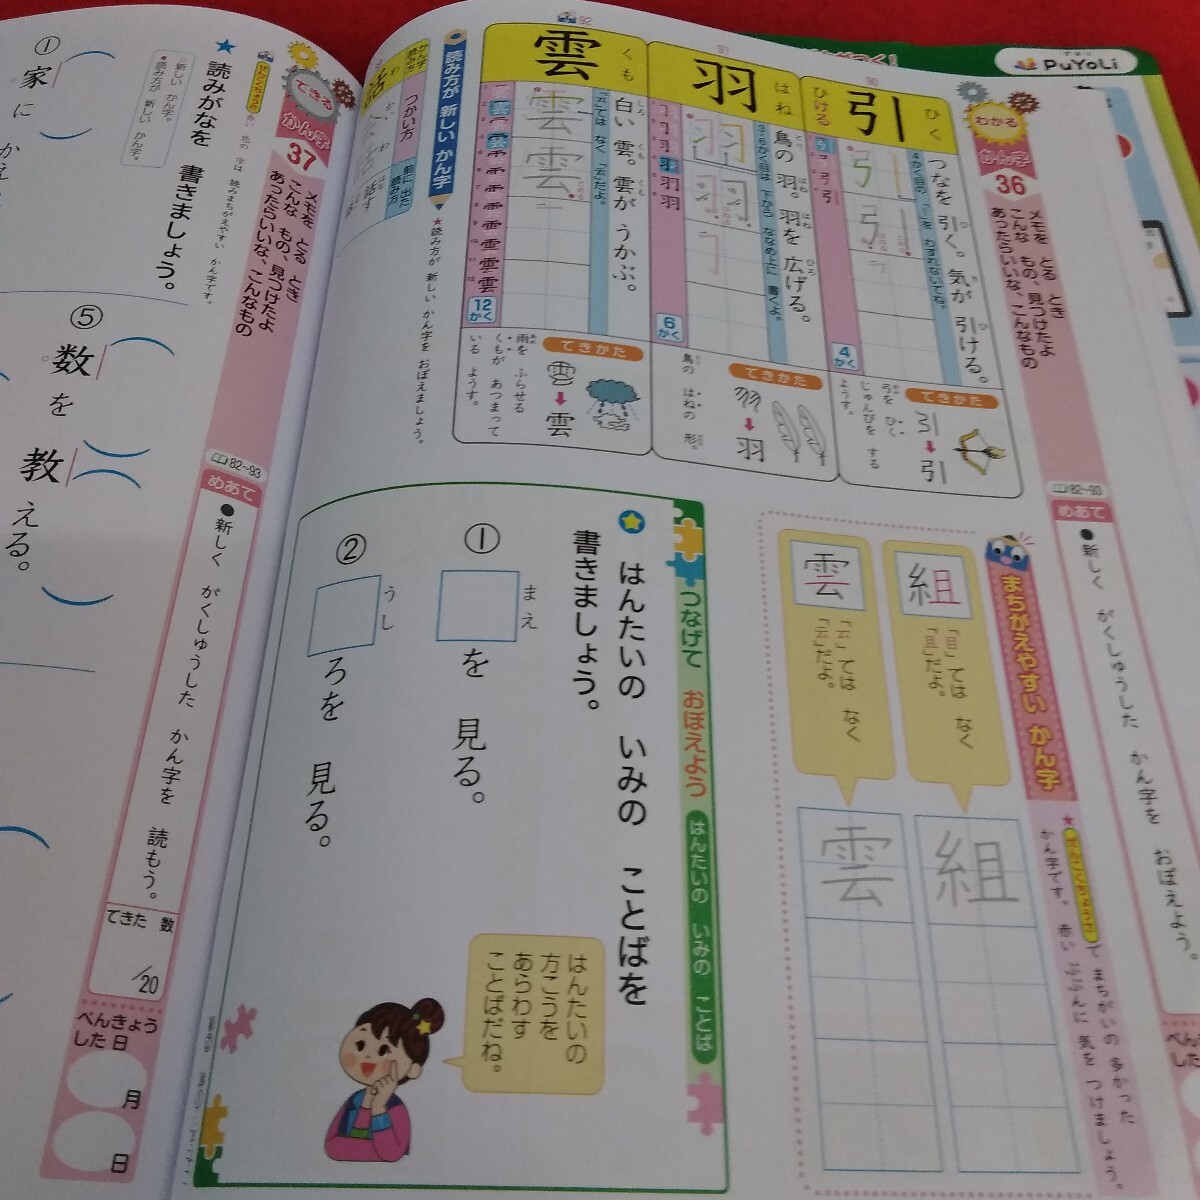 PuYoLi
わかる
かん字
36
メモを とる とき
こんな もの、見つけたよ
あったらいいな、こんなもの
82~93
めあて
●新しく がくしゅうした かん字を おぼえよう。
90
引
ひく
ひける
つなを 引く。気が 引ける。
4かく
てきかた
弓を ひく
じゅんびを する
ようす。
引
91
羽
はね
鳥の 羽。羽を 広げる。
3・6かく目は 下から ななめ上に 書くよ。
6かく
てきかた
鳥の はねの 形。
羽
92
雲
くも
白い 雲。雲が うかぶ。
「云」では なく 「云」だよ。
12かく
てきかた
雨を ふらせる
くもが あつまって
いる ようす。
雲
読み方が 新しい かん字
★読み方が 新しい かん字を おぼえましょう。
かん字
読み方
つかい方
前に出た
読み方
まちがえやすい かん字
組
「目」では なく
「且」だよ。
雲
組
雲
つなげて おぼえよう
はんたいの いみの ことば
はんたいの いみの ことばを
書きましょう。
①
まえ
を 見る。
②
うし
ろを 見る。
はんたいの
方こうを
あらわす
ことばだね。
できる
かん字
37
メモを とる とき
こんな もの、見つけたよ
あったらいいな、こんなもの
82~93
めあて
●新しく がくしゅうした かん字を 読もう。
できた 数
/20
べんきょう
した 日
月
日
★ 読みがなを 書きましょう。
○新しい かん字。
●読み方が 新しい かん字。
①
家に
⑤
数を
教える。